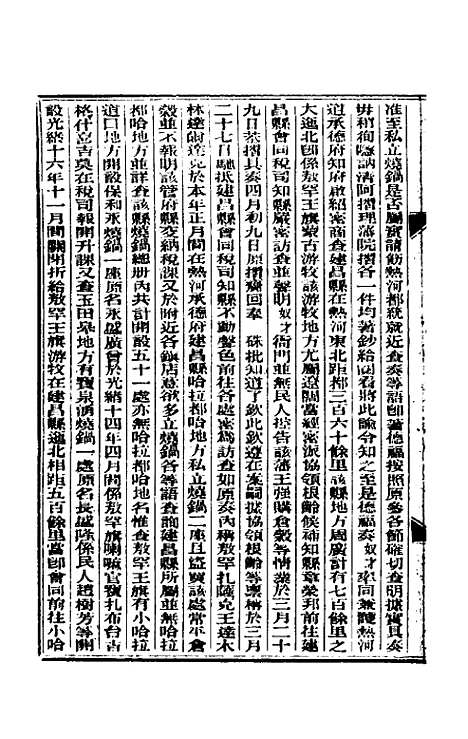 准至私立燒鍋是否屬實請飭熱河都統就近查奏等語卽著德福按照原參各節確切查明據實具奏
毋稍徇隱訥清阿摺理藩院摺各一件均著鈔給閱看將此諭令知之至是德福奏奴才率同兼護熱河
道承德府知府啟紹密商查建昌縣在熱河東北距都三百六十餘里該縣地方周廣計有七百餘里之
大迤北卽係敖罕王旗蒙古游牧該游牧地方尤屬遼闊當經密派協領根餘候補知縣章榮邦前往建
昌縣會同稅司知縣嚴密訪查並聲明奴才衙門並無民人控告該藩王強購倉穀等情業於三月二十
九日恭摺具奏四月初九日原摺齎回奉 硃批知道了欽此欽遵在案嗣據協領根餘等稟稱於三月
二十七日馳抵建昌縣會同稅司知縣不動聲色前往各處密爲訪查如原奏內稱敖罕扎薩克王達木
林達爾達克於本年正月間在熱河承德府建昌縣哈拉都哈地方私立燒鍋二座且盜賣該處常平倉
穀並不報明該管府縣交納稅課又於附近各鎮店意欲多立燒鍋各等語查詢建昌縣所屬並無哈拉
都哈地方並詳查該縣燒鍋總册內共計開設五十一處亦無哈拉都哈地名惟查敖罕王旗有小哈拉
道口地方開設保和永燒鍋一座原名永盛廣會於光緒十四年四月間係敖罕旗喇嘛官寶扎布台吉
格什立吉莫在稅司報開升課又查玉田皋地方有寶泉湧燒鍋一處原名長盛隆係民人趙樹芳等開
設光緒十六年十一月間關閉折給敖罕王旗游牧在建昌縣迤北相距五百餘里當卽會同前往小哈